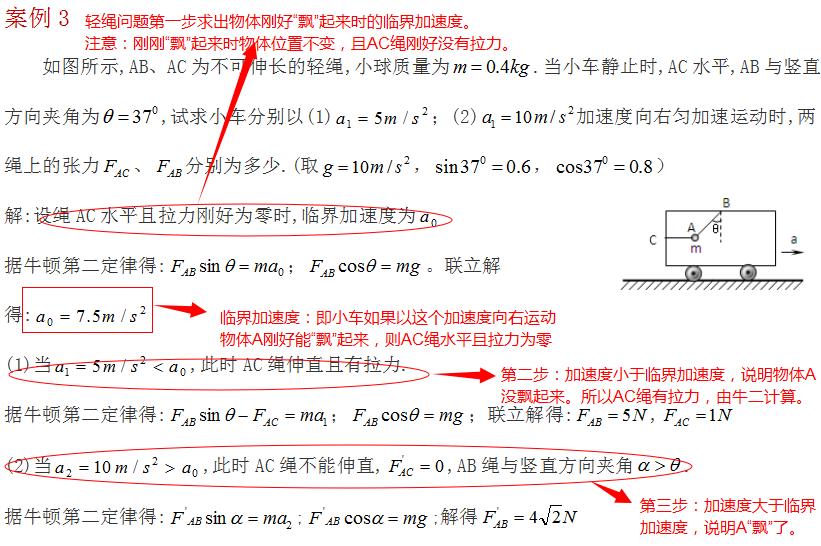 案例 3 轻绳问题第一步求出物体刚好“飘”起来时的临界加速度。
注意：刚刚“飘”起来时物体位置不变，且AC绳刚好没有拉力。
如图所示,AB、AC 为不可伸长的轻绳,小球质量为m=0.4kg.当小车静止时,AC 水平,AB 与竖直
方向夹角为θ=37⁰,试求小车分别以(1) a₁=5m/s²；(2) a₁=10m/s²加速度向右匀加速运动时,两
绳上的张力F_AC、F_AB分别为多少.(取g=10m/s²，sin37⁰=0.6，cos37⁰=0.8）
解:设绳 AC 水平且拉力刚好为零时,临界加速度为a₀
据牛顿第二定律得: F_AB sinθ=ma₀；F_AB cosθ=mg。联立解
得: a₀=7.5m/s²
临界加速度：即小车如果以这个加速度向右运动
物体A刚好能“飘”起来，则AC绳水平且拉力为零
B
A
θ
C
m
a
(1)当a₁=5m/s²<a₀,此时 AC 绳伸直且有拉力.
第二步：加速度小于临界加速度，说明物体A
没飘起来。所以AC绳有拉力，由牛二计算。
据牛顿第二定律得: F_AB sinθ-F_AC=ma₁；F_AB cosθ=mg；联立解得: F_AB=5N, F_AC=1N
(2)当a₂=10m/s²>a₀,此时 AC 绳不能伸直, F'_AC=0,AB 绳与竖直方向夹角α>θ.
第三步：加速度大于临界
加速度，说明A“飘”了。
据牛顿第二定律得: F'_AB sinα=ma₂; F'_AB cosα=mg;解得F'_AB=4√2N